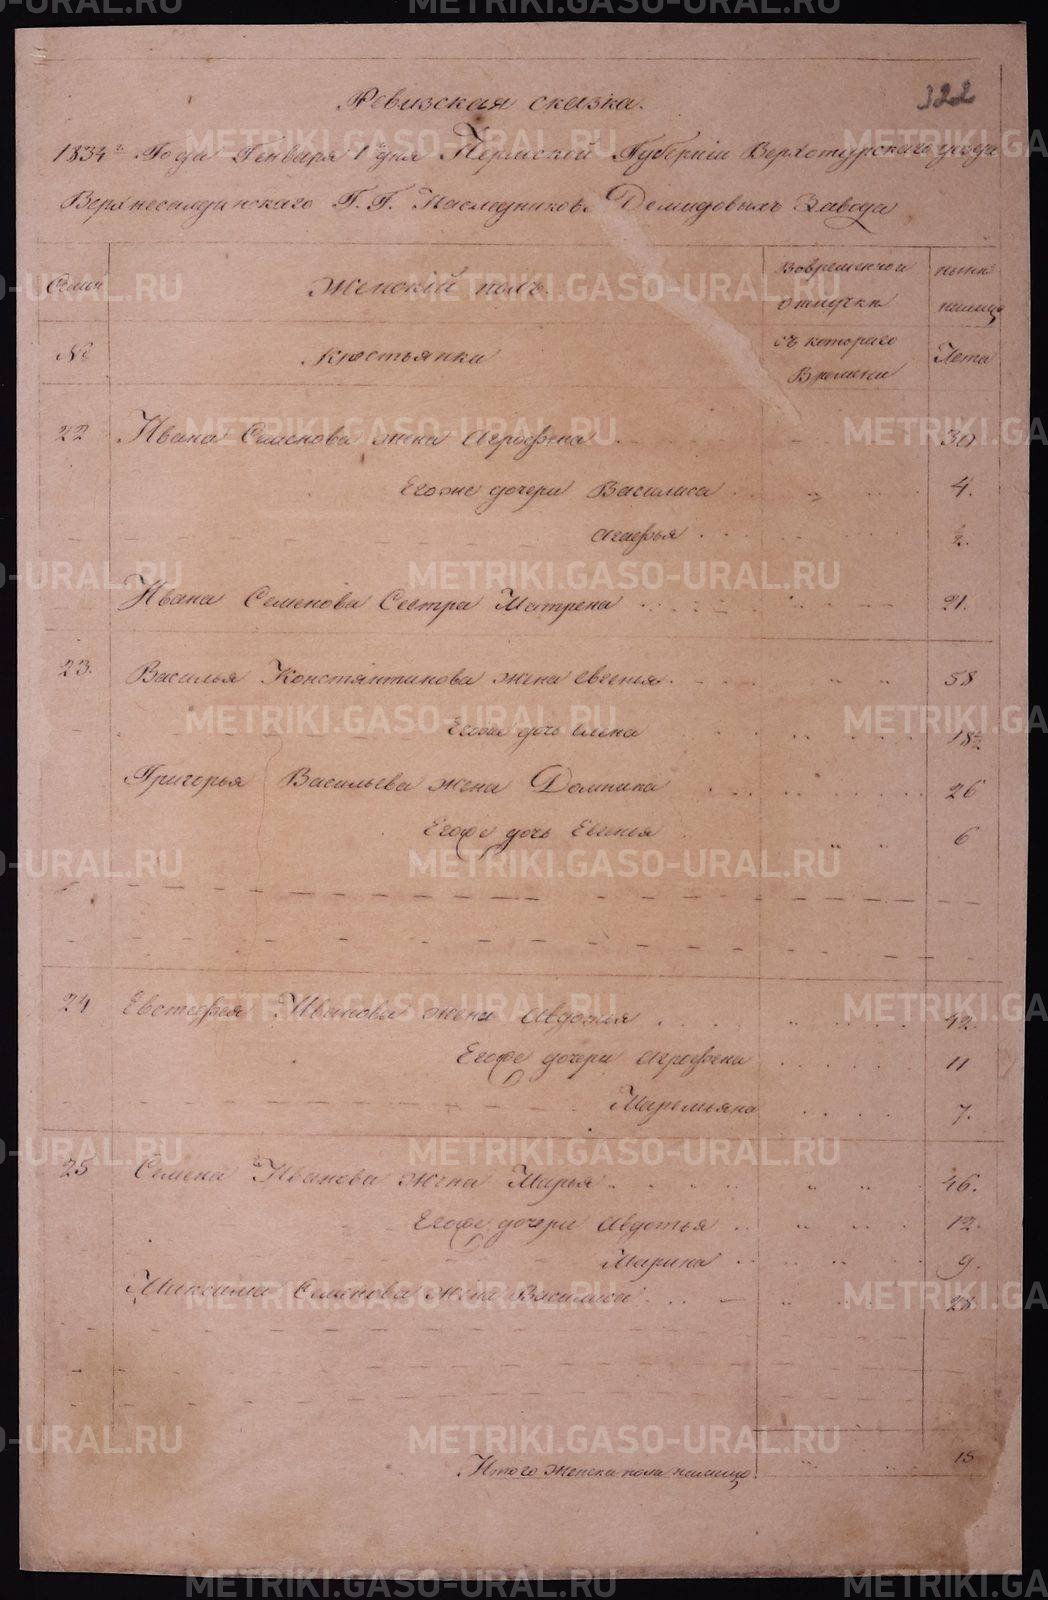 322
Ревизская сказка.
1834го Года Генваря 1 дня Пермской Губерніи Верхотурскаго уезда
Верхнесалдинскаго Г. Г. Наследниковъ Демидовыхъ Завода
Семьи
Женскій полъ.
Вовременной
отлучки
ныне
налицо
№
Крестьянки
съ котораго
Времени
Лета
22 Ивана Семенова жена Агрофена 30
Егоже дочери Василиса 4.
Агафья ½.
Ивана Семенова Сестра Матрена 21.
23. Василья Константинова жена Евгения 58
Егоже дочь Елена 18½
Григорья Васильева жена Домника 26
Егоже дочь Евгенья 6
24 Евстифея Иванова жена Авдотья 42.
Егоже дочери Агрофена 11
Маремьяна 7.
25 Семена Иванова жена Марья 46.
Егоже дочери Авдотья 12.
Марина 9.
Семенова жена Василиса 28
Итого женска пола налицо. 15
METRIKI.GASO-URAL.RU